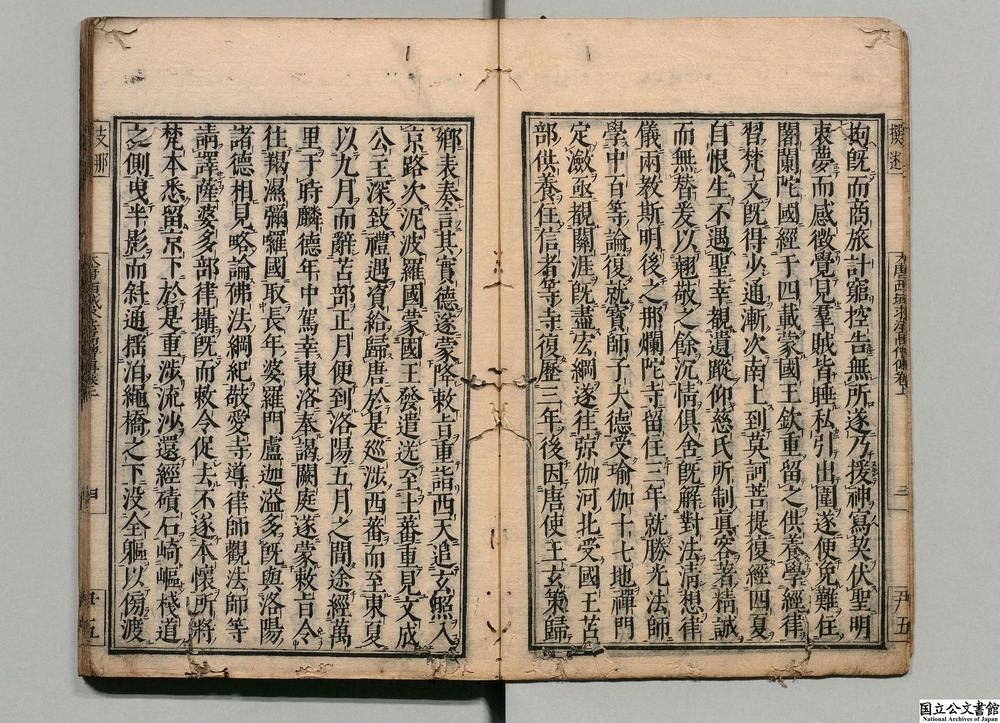 拘旣而商旅計窮控告無所遂乃援神寫契伏聖明
衷夢而感徵覺見羣賊皆睡私引出圍遂便免難住
闍闌陀國經于四載蒙國王欽重留之供養學經律
習梵文旣得少通漸次南上到莫訶菩提復經四夏
自恨生不遇聖幸覩遺蹤仰慈氏所制眞容著精誠
而無替爰以翹敬之餘沉情俱舍旣解對法清想律
儀兩敎斯明後之那爛陀寺留住三年就勝光法師
學中百等論復就寶師子大德受瑜伽十七地禪門
定瀲亟覩關涯旣盡宏綱遂往弶伽河北受國王苫
部供養住信者等寺復歷三年後因唐使王玄策歸
三
尹五
鄕表奏言其實德遂蒙降敕旨重詣西天追玄照入
京路次泥波羅國蒙國王發遣送至土蕃重見文成
公主深致禮遇資給歸唐於是巡涉西蕃而至東夏
以九月而辭苫部正月便到洛陽五月之間途經萬
里于時麟德年中駕幸東洛奉謁闕庭遂蒙敕旨令
往羯濕彌囉國取長年婆羅門盧迦溢多旣與洛陽
諸德相見略論佛法綱紀敬愛寺導律師觀法師等
請譯薩婆多部律攝旣而敕令促去不遂本懷所將
梵本悉留京下於是重涉流沙還經磧石崎嶇棧道
之側曳半影而斜通揺泊繩橋之下没全軀以傍渡
支那
四
五
国立公文書館
National Archives of Japan